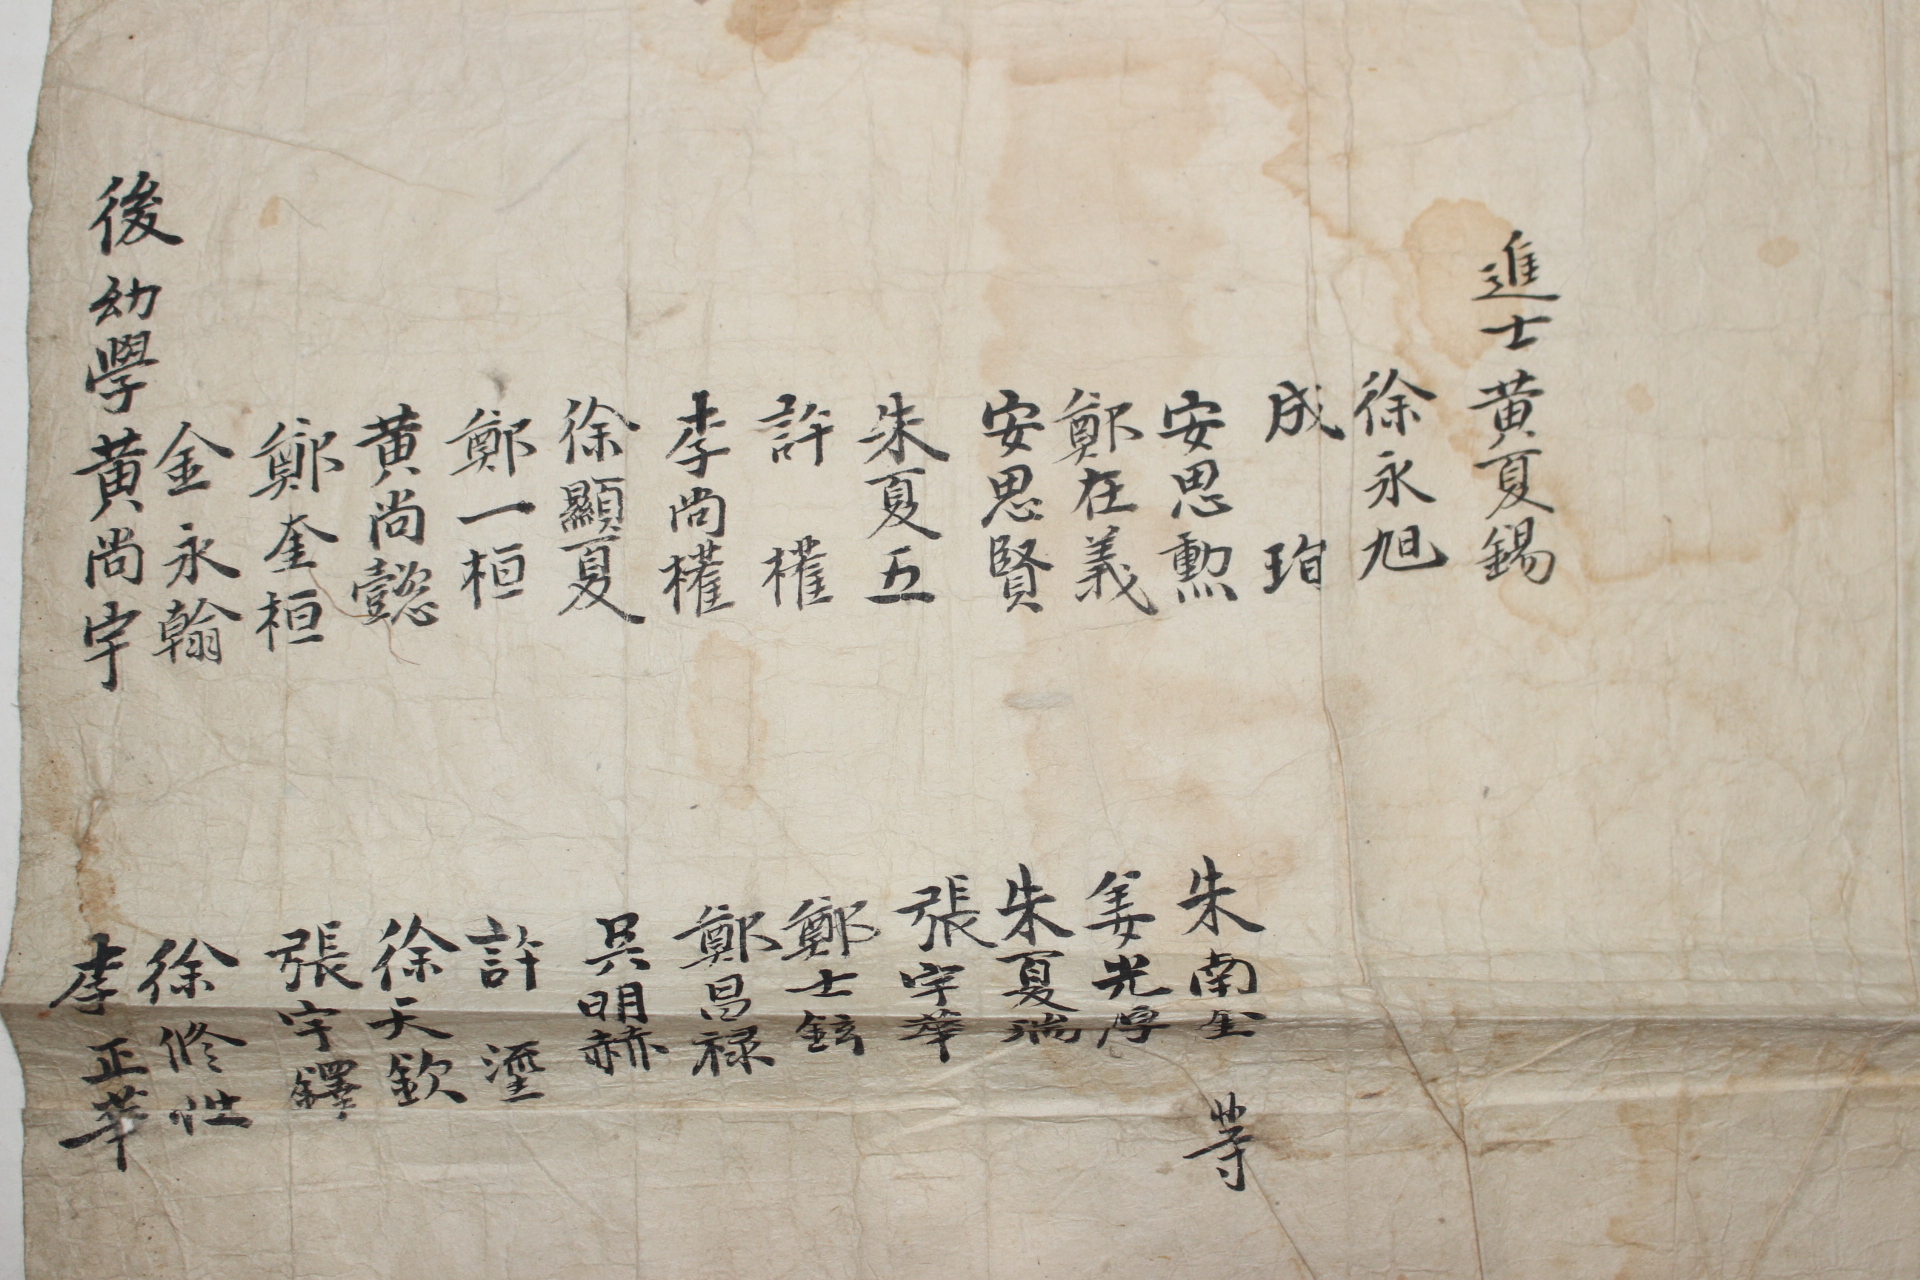 進士黃夏錫
徐永旭
成珣
安思勳
鄭在義
安思賢
朱夏五
許權
李尚權
徐顯夏
鄭一桓
黃尚懿
鄭奎桓
金永翰
後幼學黃尚宇
朱南 等
姜光厚
朱夏瑞
張宇華
鄭士鉉
鄭昌祿
吳明赫
許
徐天欽
張宇鐸
徐修性
李正華